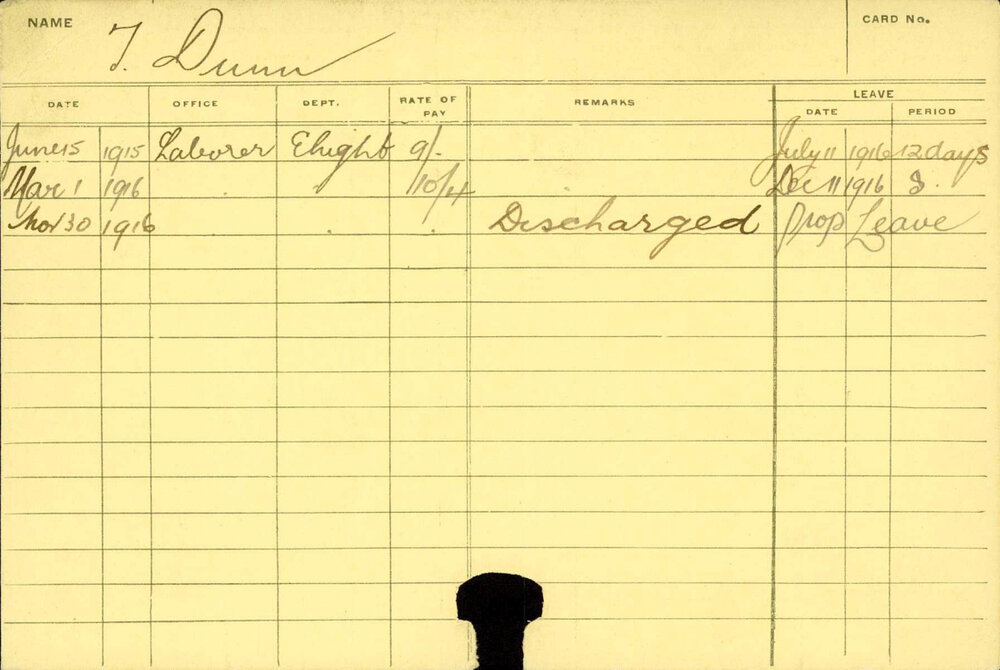 NAME T. Dunn CARD No.
DATE OFFICE DEPT. RATE OF PAY REMARKS LEAVE
DATE PERIOD
June 15 1915 Laborer Elight 9/- July 11 1916 12 days
Mar 1 1916 . . 10/4 Dec 11 1916 3.
Nov 30 1916 . . . Discharged Prop Leave